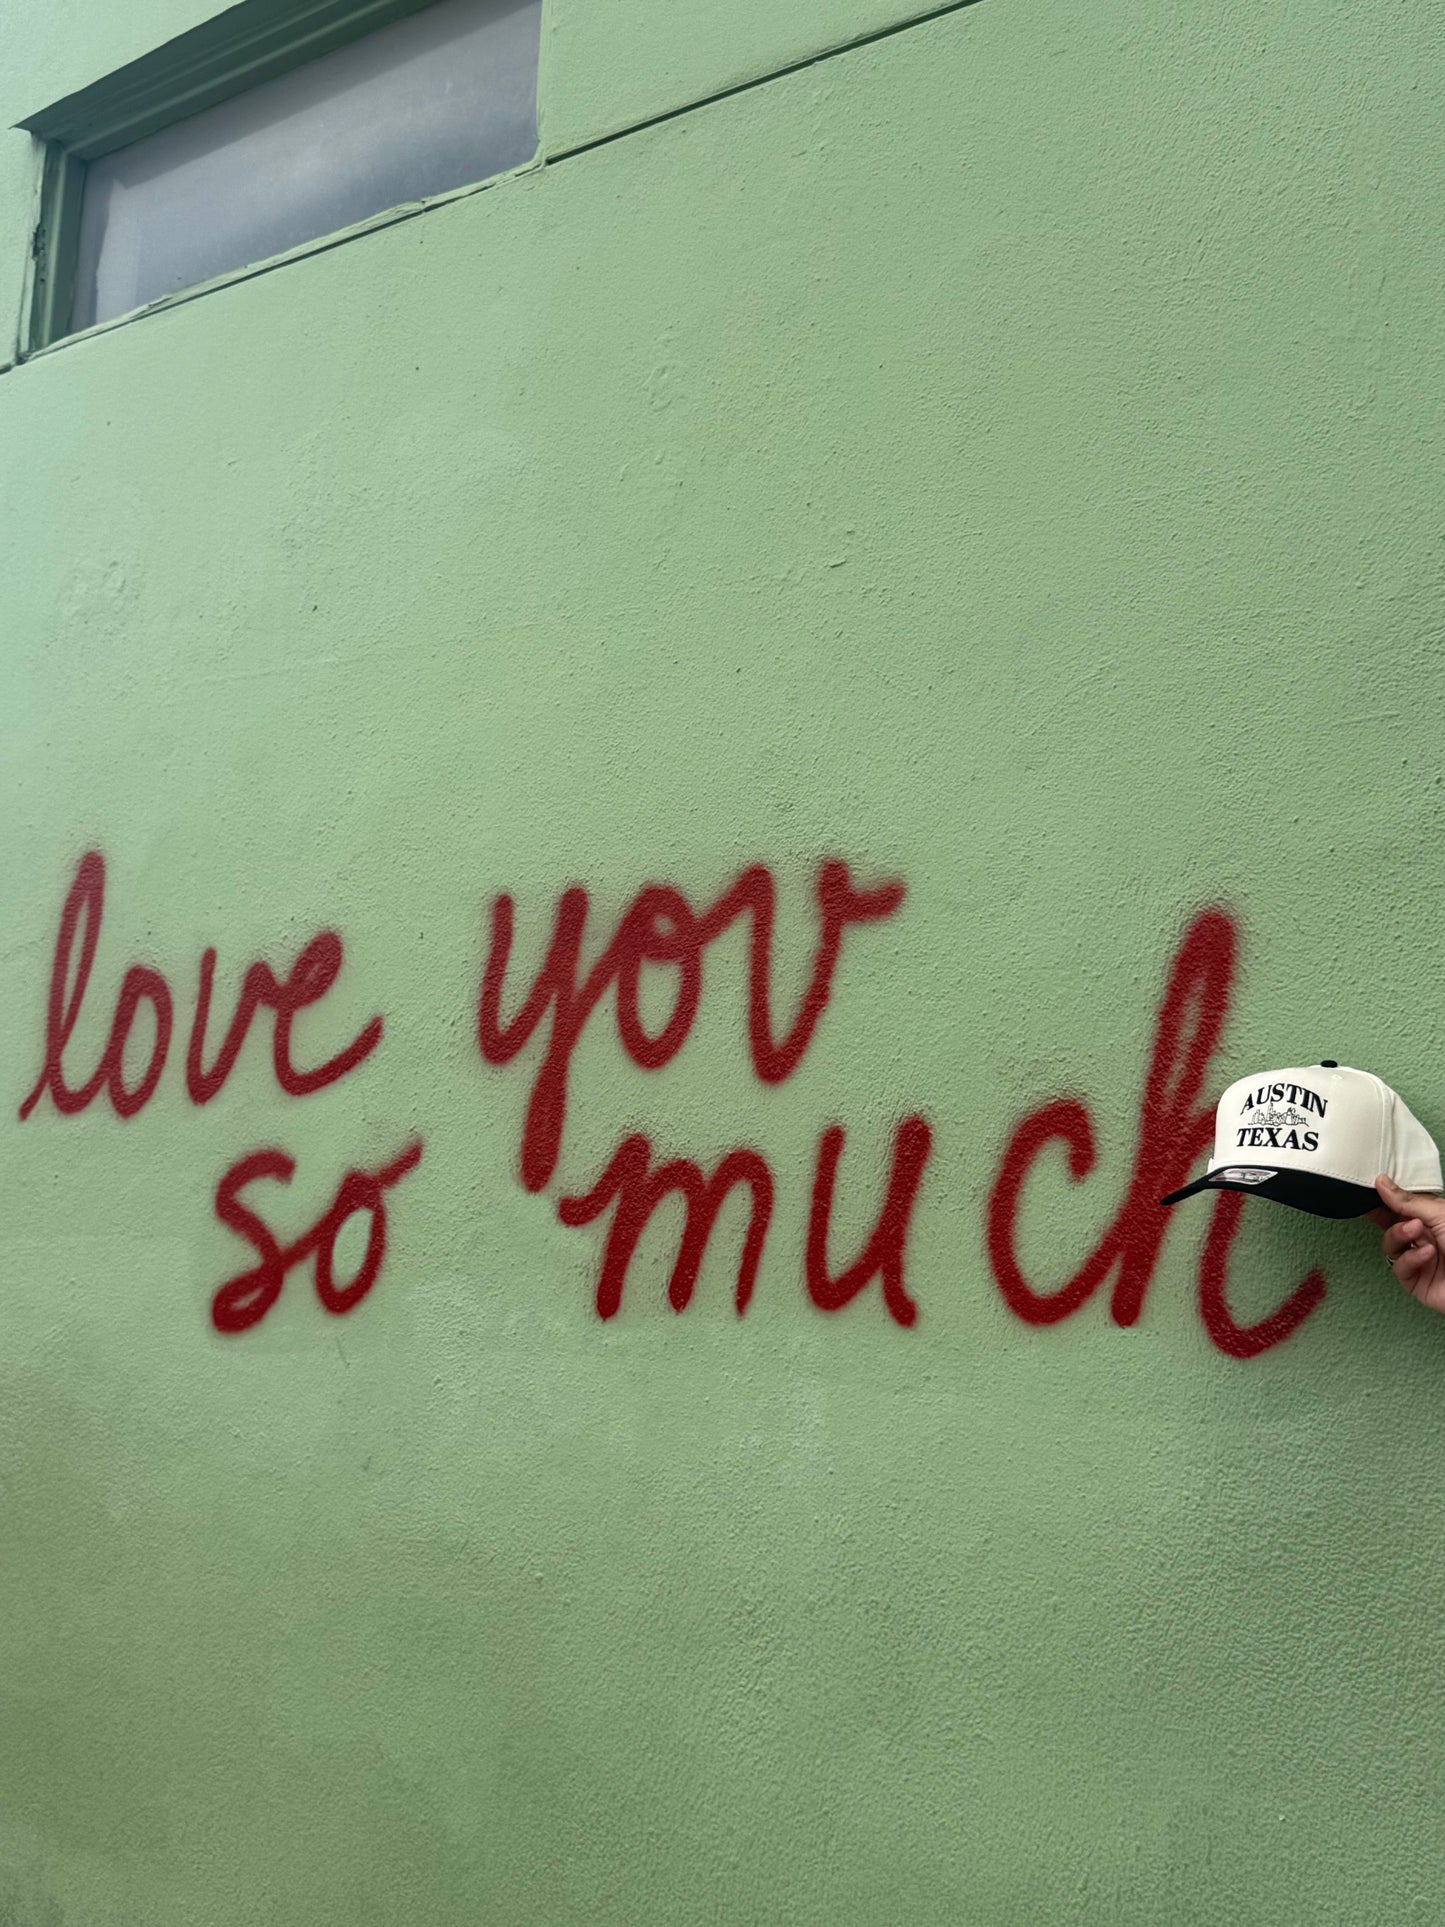 love you
so much
AUSTIN
TEXAS